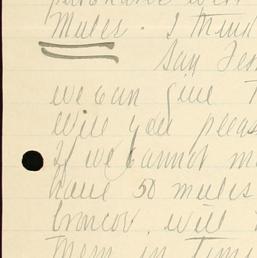 Mules. I think
Say
we can give
Will you please
If we cannot
have 50 mules
broncos, will
them in time